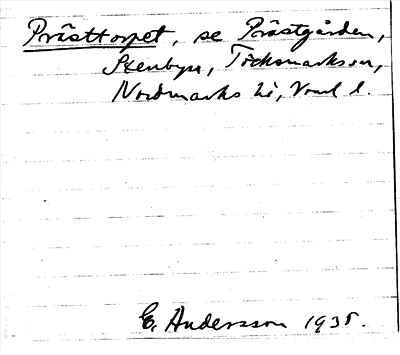 Prästtorpet, se Prästgården,
Stenbyn, Töcksmarks sn,
Nordmarks hd, Vrml l.
E. Andersson 1935.